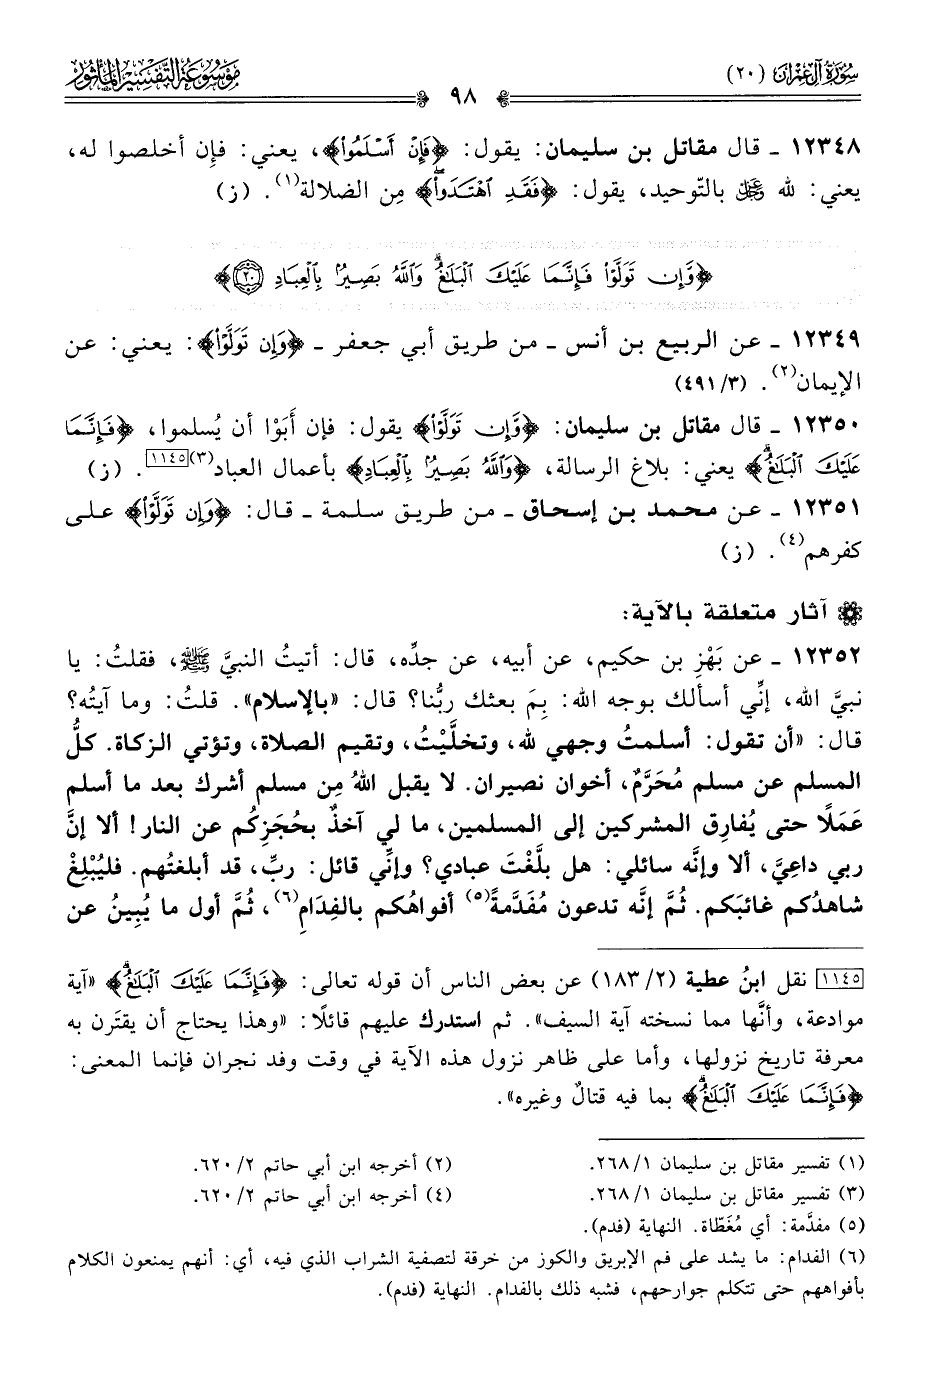 سُورَةُ آلِ عِمْرَان (٢٠)
مَوْسُوعَة التَّفْسِير المَأْثُور
٩٨
١٢٣٤٨ ـ قال مقاتل بن سليمان: يقول: ﴿فَإِنْ أَسْلَمُوا۟﴾، يعني: فإن أخلصوا له،
يعني: لله ﷿ بالتّوحيد، يقول: ﴿فَقَدِ ٱهْتَدَوا۟ۖ﴾ مِن الضلالة(١). (ز)
﴿وَّإِن تَوَلَّوْا۟ فَإِنَّمَا عَلَيْكَ ٱلْبَلَٰغُۗ وَٱللَّهُ بَصِيرٌۢ بِٱلْعِبَادِ ٢٠﴾
١٢٣٤٩ ـ عن الربيع بن أنس ـ من طريق أبي جعفر ـ ﴿وَإِن تَوَلَّوْا۟﴾: يعني: عن
الإيمان(٢). (٤٩١/٣)
١٢٣٥٠ ـ قال مقاتل بن سليمان: ﴿وَّإِن تَوَلَّوْا۟﴾ يقول: فإن أَبَوْا أن يُسلموا، ﴿فَإِنَّمَا
عَلَيْكَ ٱلْبَلَٰغُۗ﴾ يعني: بلاغ الرسالة، ﴿وَٱللَّهُ بَصِيرٌۢ بِٱلْعِبَادِ﴾ بأعمال العباد(٣)[١١٤٥]. (ز)
١٢٣٥١ ـ عن محمد بن إسحاق ـ من طريق سلمة ـ قال: ﴿وَإِن تَوَلَّوْا۟﴾ على
كفرهم(٤). (ز)
آثار متعلقة بالآية:
١٢٣٥٢ ـ عن بَهْزِ بن حكيم، عن أبيه، عن جدِّه، قال: أتيتُ النبيَّ ﷺ، فقلتُ: يا
نبيَّ الله، إنِّي أسألك بوجه الله: بِمَ بعثك ربُّنا؟ قال: «بالإسلام». قلتُ: وما آيتُه؟
قال: «أن تقول: أسلمتُ وجهي لله، وتخلَّيْتُ، وتقيم الصلاة، وتؤتي الزكاة. كلُّ
المسلم عن مسلم مُحَرَّمٌ، أخوان نصيران. لا يقبل اللهُ مِن مسلم أشرك بعد ما أسلم
عَمَلًا حتى يُفارِق المشركين إلى المسلمين، ما لي آخذٌ بحُجَزِكُم عن النار! ألا إنَّ
ربي داعِيَّ، ألا وإنَّه سائلي: هل بلَّغْتَ عبادي؟ وإنِّي قائل: ربِّ، قد أبلغتُهم. فليُبْلِغْ
شاهدُكم غائبَكم. ثُمَّ إنَّه تدعون مُفَدَّمةً(٥) أفواهُكم بالفِدَامِ(٦)، ثُمَّ أول ما يُبِينُ عن
[١١٤٥] نقل ابنُ عطية (١٨٣/٢) عن بعض الناس أن قوله تعالى: ﴿فَإِنَّمَا عَلَيْكَ ٱلْبَلَٰغُۗ﴾ «آية
موادعة، وأنَّها مما نسخته آية السيف». ثم استدرك عليهم قائلًا: «وهذا يحتاج أن يقتَرن به
معرفة تاريخ نزولها، وأما على ظاهر نزول هذه الآية في وقت وفد نجران فإنما المعنى:
﴿فَإِنَّمَا عَلَيْكَ ٱلْبَلَٰغُۗ﴾ بما فيه قتالٌ وغيره».
(١) تفسير مقاتل بن سليمان ٢٦٨/١.
(٢) أخرجه ابن أبي حاتم ٦٢٠/٢.
(٣) تفسير مقاتل بن سليمان ٢٦٨/١.
(٤) أخرجه ابن أبي حاتم ٦٢٠/٢.
(٥) مفدَّمة: أي مُغَطّاة. النهاية (فدم).
(٦) الفدام: ما يشد على فم الإبريق والكوز من خرقة لتصفية الشراب الذي فيه، أي: أنهم يمنعون الكلام
بأفواههم حتى تتكلم جوارحهم، فشبه ذلك بالفدام. النهاية (فدم).